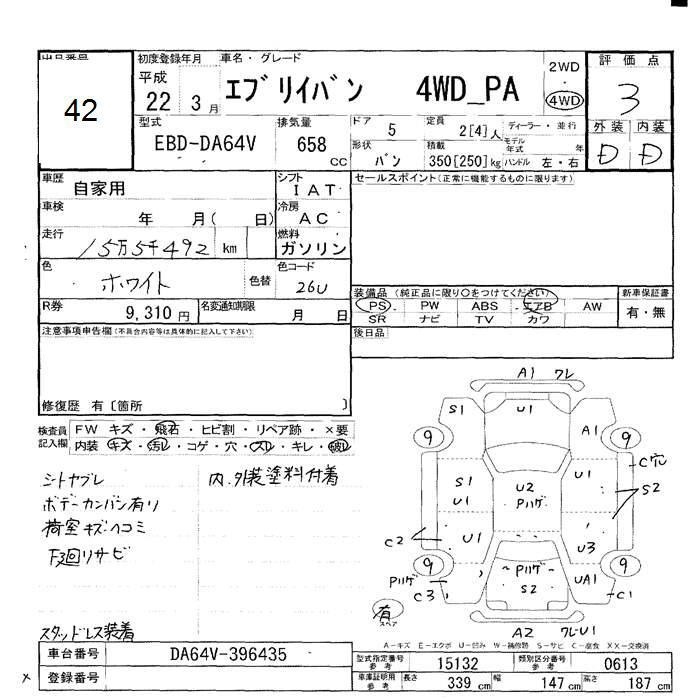 初度登録年月 車名・グレード 2WD・4WD 評価点
42
平成22年3月 エブリイバン 4WD_PA 3
外装 内装
D D
型式 EBD-DA64V 排気量 658 CC
ドア 5 定員 2[4]人 ディーラー・並行
形状 バン 積載 350[250]kg モデル年式 年 ハンドル 左・右
車歴 自家用 シフト IAT セールスポイント(正常に機能するものに限ります)
車検 年 月( 日) 冷房 AC
走行 15万5千492 km 燃料 ガソリン
色 ホワイト 色替 色コード 26U
装備品(純正品に限り○をつけてください) 新車保証書
PS・PW ABS・エアB AW 有・無
SR ナビ TV カワ
R券 9,310円 名変通知期限 月 日
後日品
注意事項申告欄(不具合内容等は具体的に記入して下さい)
修復歴 有〔箇所 〕
検査員記入欄 FW キズ・飛石・ヒビ割・リペア跡・×要
内装 キズ・汚レ・コゲ・穴・スレ・キレ・破レ
シトヤブレ 内、外装塗料付着
ボデーカンバン有り
荷室キズヘコミ
F3回リサビ
スタッドレス装着
A1 ワレ
S1 U1 A1
9 9
C穴
S1 U1 U2 Pハゲ U1 S2
C2 U1 U3
9 9
Pハゲ C3 ~Pハゲ~ S2 UA1 C1
有 スペア
A2 ワレU1
A-キズ E-エクボ U-凹み W-補修跡 S-サビ C-腐食 XX-交換済
車台番号 DA64V-396435
型式指定番号 参考 15132 類別区分番号 参考 0613
登録番号
車庫証明用 参考 長さ 339 cm 幅 147 cm 高さ 187 cm